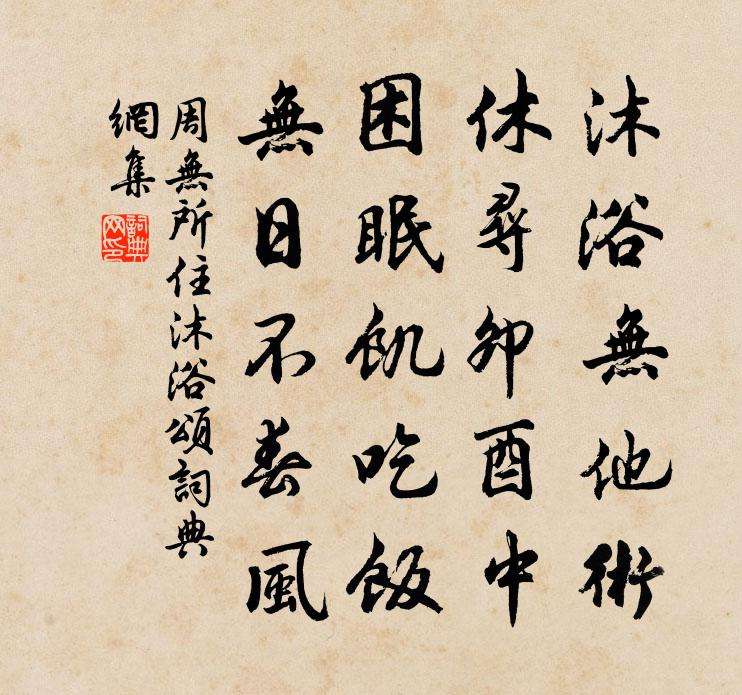 沐浴無他術
休尋卯酉中
困眠飢吃飯
無日不春風
周無所住沐浴頌詞典
網集
詞典網印